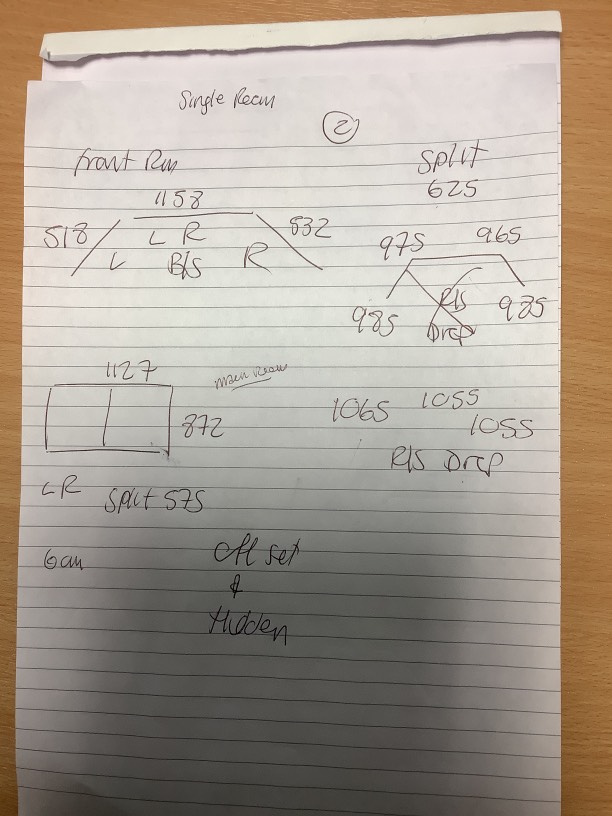 Single Room
2
Front Rm
Split
625
1158
518
532
L R
L
B/S
R
975
965
985
925
R/S
Drop
1127
Main Room
872
1065
1055
1055
R/S Drop
LR
Split 575
Off set
&
Hidden